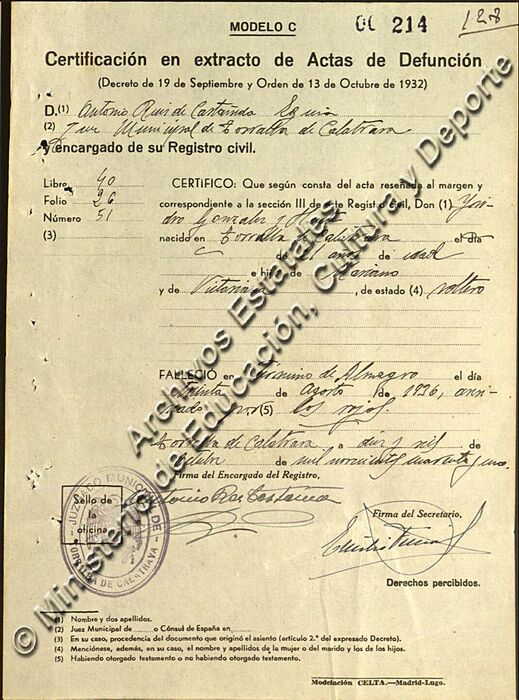 MODELO C
00 214
128
Certificación en extracto de Actas de Defunción
(Decreto de 19 de Septiembre y Orden de 13 de Octubre de 1932)
D.(1) Antonio Ruiz de Castañeda
(2) Juez Municipal de Torralba de Calatrava
y encargado de su Registro civil.
Libro 40
Folio 26
Número 51
(3)
CERTIFICO: Que según consta del acta reseñada al margen y
correspondiente a la sección III de este Registro Civil, Don (1)
Gonzalez y
nacido en Torralba de Calatrava el día
de años de edad
e hijo de Mariano
y de Victoriana, de estado (4) soltero
FALLECIÓ en término de Almagro el día
treinta de Agosto de 1936, asesi-
nado por (5) los rojos
Torralba de Calatrava a diez y seis de
Octubre de mil novecientos cuarenta y uno.
Firma del Encargado del Registro,
Sello de
la
oficina
JUZGADO MUNICIPAL DE
TORRALBA DE CALATRAVA
Firma del Secretario,
Derechos percibidos.
(1) Nombre y dos apellidos.
(2) Juez Municipal de ...... o Cónsul de España en ......
(3) En su caso, procedencia del documento que originó el asiento (artículo 2.º del expresado Decreto).
(4) Menciónese, además, en su caso, el nombre y apellidos de la mujer o del marido y los de los hijos.
(5) Habiendo otorgado testamento o no habiendo otorgado testamento.
Modelación CELTA.—Madrid-Lugo.
Archivos Estatales
© Ministerio de Educación, Cultura y Deporte